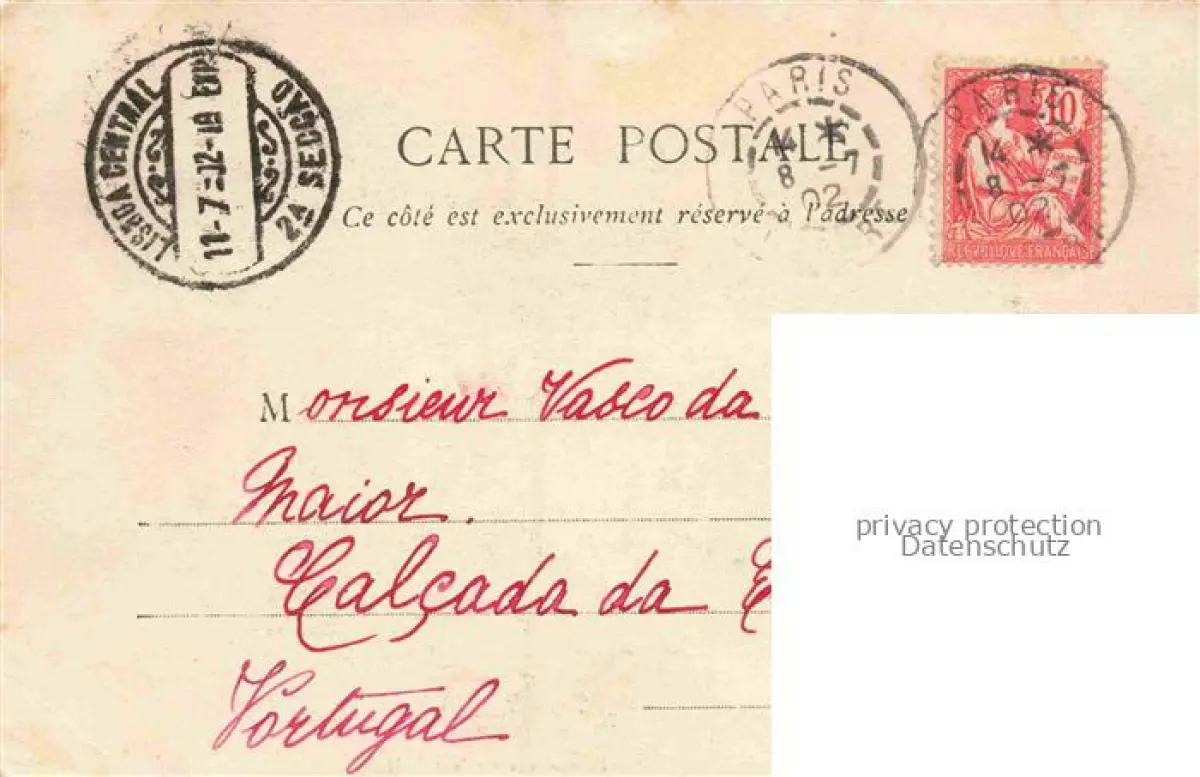 LISBOA CENTRAL
11-7-02-
2A SECCAO
PARIS
14 *
8 -7
02
10
PARIS
14 *
8 -7
02
REPUBLIQUE FRANÇAISE
CARTE POSTALE
Ce côté est exclusivement réservé à l'adresse
Monsieur Vasco da
Maior.
Calçada da E
Portugal
privacy protection
Datenschutz